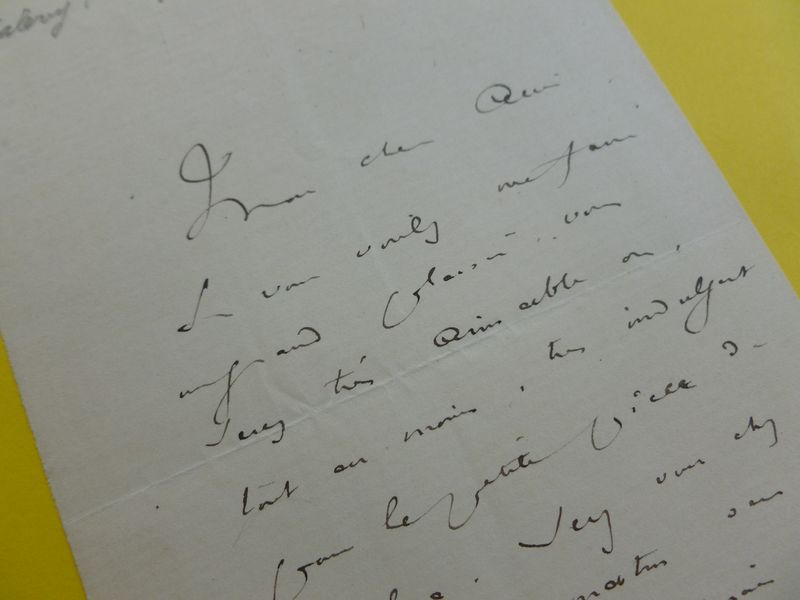 Mon cher Ami
Si vous voulez me faire
un grand plaisir, vous
serez très aimable ou,
tout au moins, très indulgent
pour la petite pièce
Serez vous chez